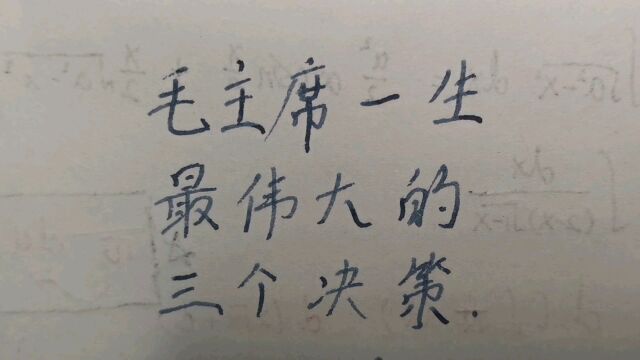 毛主席一生
最伟大的
三个决策.